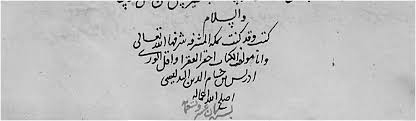 والسلام
كتبت وقد كنت بمكة المشرفة شرفها الله تعالى
وانا مؤلف الكتاب احقر الفقرا واقل الورى
ادريس بن حسام الدين البدليسي
اصلح الله اعماله